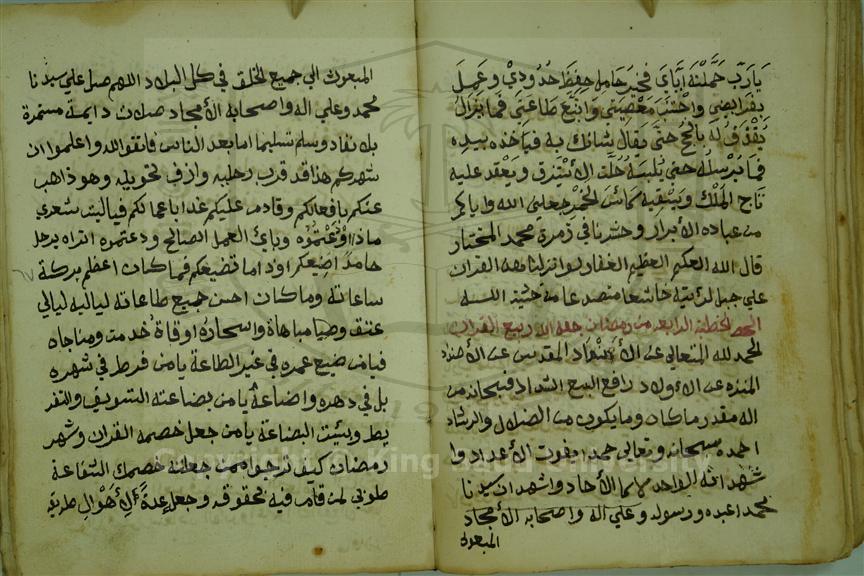 يَارَبِّ حَمَّلْتَهُ اِيَّايَ فَخَيْرُ حَامِلٍ حِفِظَ حُدُودِيْ وَعَمِلَ
بِفَرَايِضِي وَاجْتَنَبَ مَعْصِيَتِي وَاتَّبَعَ طَاعَتِي فَمَا يَزَالُ
يُقْذَفُ لَهُ بِالْحُجَجِ حَتَّى يُقَالَ شَانُكَ بِهِ فَيَاخُذُ بِيَدِهِ
فَمَا يُرْسِلُهُ حَتَّى يُلْبِسَهُ حُلَّةَ الاسْتَبْرَقِ وَيَعْقِدَ عَلَيه
تَاجَ المُلْكِ وَيَسْقِيَه كَاسَ الخَمْرِ جعلني الله واياكم
من عباده الأبرار وحشرنا في زمرة محمد المختار
قال الله العظيم الغفار لو انزلنا هذا القران
علي جبل لرأيته خاشعا متصدعا من خشية الله
الخطبة الرابعة من رمضان ربيع القران
الحمد لله المتعالي عن الأنداد المقدس عن الأضداد
المنزه عن الأولاد رافع السبع الشداد فسبحانه من
اله مقدر ما كان وما يكون من الضلال والرشاد
احمده سبحانه وتعالى حمدا يفوت الأعداد وا
شهد انه الواحد لا كالأحاد واشهد ان سيدنا
محمدا عبده ورسوله وعلي اله واصحابه الأمجاد
المبعوث
المبعوث الي جميع الخلق في كل البلاد اللهم صل علي سيدنا
محمد وعلي اله واصحابه الأمجاد صلات دايمة مستمرة
بلا نفاد وسلم تسليما اما بعد الناس فاتقوا الله واعلموا ان
شهركم هذا قد قرب رحيله وازف تحويله وهو ذاهب
عنكم بافعالكم وقادم عليكم غدا باعمالكم فياليت شعري
ماذا اودعتموه وباي العمل الصالح ودعتموه اتراه يرحل
حامدا صنيعكم اوذاما تضيعكم فما كان اعظم بركة
ساعاته وما كان احسن جميع طاعاته لياليه ليالي
عتق ومباهاة واسحاره اوقاة خدمت ومناجاه
فيامن ضيع عمره في غير الطاعة يا من فرط في شهره
بل في دهره واضاعه يا من بضاعته التسويف والتفر
يط وبئست البضاعة يا من جعل خصمه القران وشهر
رمضان كيف ترجوا ممن جعلته خصمك الشفاعة
طوبي لمن قام فيه بحقوقه وجعله عدة لأهوال طريقه